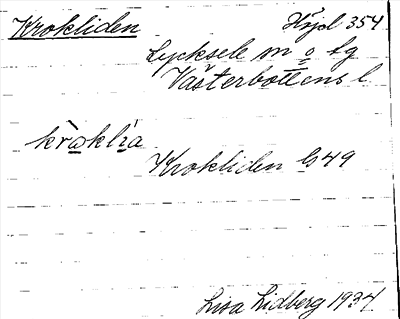 Krokliden Höjd 354
Lycksele m o lg
Västerbottens l
kròklìa
Krokliden G49
Lisa Lidberg 1934